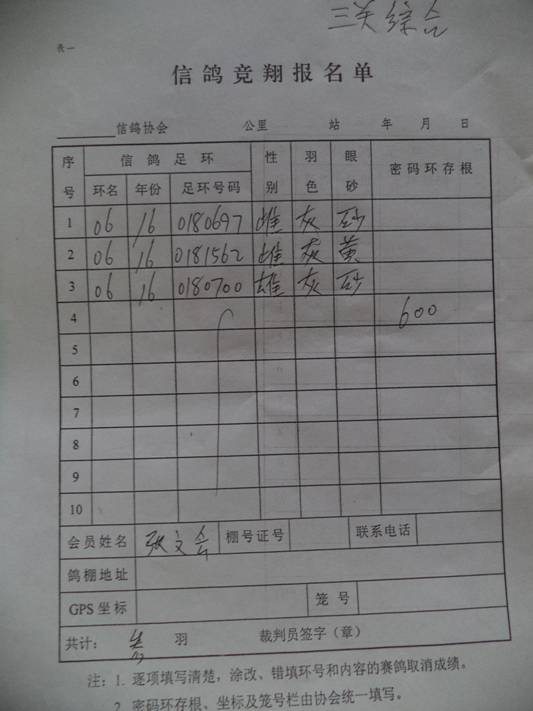 三关综合
表一
信鸽竞翔报名单
信鸽协会 公里 站 年 月 日
序号 信鸽足环 性别 羽色 眼砂 密码环存根
环名 年份 足环号码
1 06 16 0180697 雌 灰 砂
2 06 16 0181562 雌 灰 黄
3 06 16 0180700 雄 灰 砂
4 600
5
6
7
8
9
10
会员姓名 张文会 棚号证号 联系电话
鸽棚地址
GPS 坐标 笼号
共计: 羽 裁判员签字(章)
注:1. 逐项填写清楚,涂改、错填环号和内容的赛鸽取消成绩。
2. 密码环存根、坐标及笼号栏由协会统一填写。